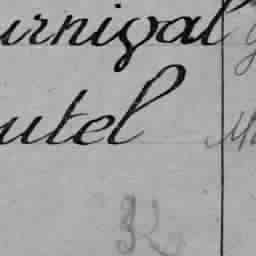 urnival
utel
32